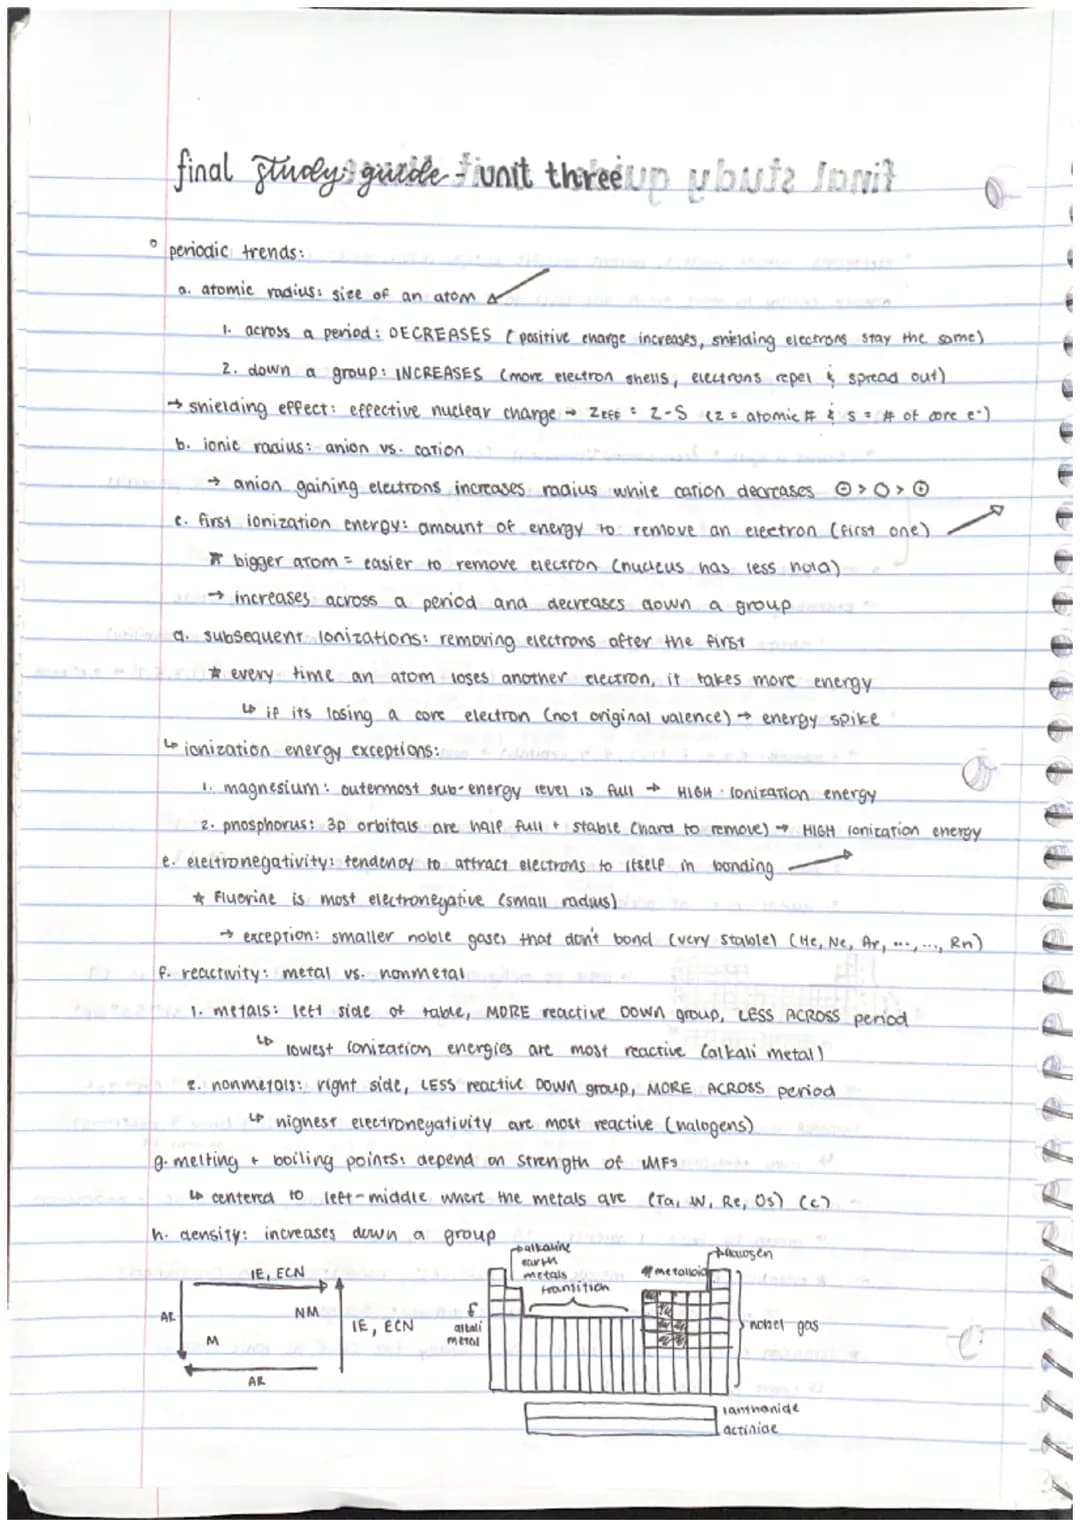 final study guide - unit three
° periodic trends:
a. atomic radius: size of an atom
1. across a period: DECREASES (positive charge increases, shielding electrons stay the same)
2. down a group: INCREASES (more electron shells, electrons repel & spread out)
→ shielding effect: effective nuclear charge → Zeff = Z-S (Z = atomic # & S = # of core e-)
b. ionic radius: anion vs. cation
→ anion gaining electrons increases radius while cation decreases ⊖ > O > ⊕
c. first ionization energy: amount of energy to remove an electron (first one)
* bigger atom = easier to remove electron (nucleus has less hold)
→ increases across a period and decreases down a group
d. subsequent ionizations: removing electrons after the first
* every time an atom loses another electron, it takes more energy
↳ if its losing a core electron (not original valence) → energy spike
↳ ionization energy exceptions:
1. magnesium: outermost sub-energy level is full → HIGH ionization energy
2. phosphorus: 3p orbitals are half full + stable (hard to remove) → HIGH ionization energy
e. electronegativity: tendency to attract electrons to itself in bonding
* Fluorine is most electronegative (small radius)
→ exception: smaller noble gases that don't bond (very stable) (He, Ne, Ar, ..., ..., Rn)
f. reactivity: metal vs. nonmetal
1. metals: left side of table, MORE reactive DOWN group, LESS ACROSS period
↳ lowest ionization energies are most reactive (alkali metal)
2. nonmetals: right side, LESS reactive DOWN group, MORE ACROSS period
↳ highest electronegativity are most reactive (halogens)
g. melting + boiling points: depend on strength of IMFs
↳ centered to left-middle where the metals are (Ta, W, Re, Os) (C)
h. density: increases down a group
IE, ECN
AR
NM
M
AR
IE, ECN
alkali
metal
alkaline
earth
metals
transition
metalloid
halogen
nobel gas
lanthanide
actinide